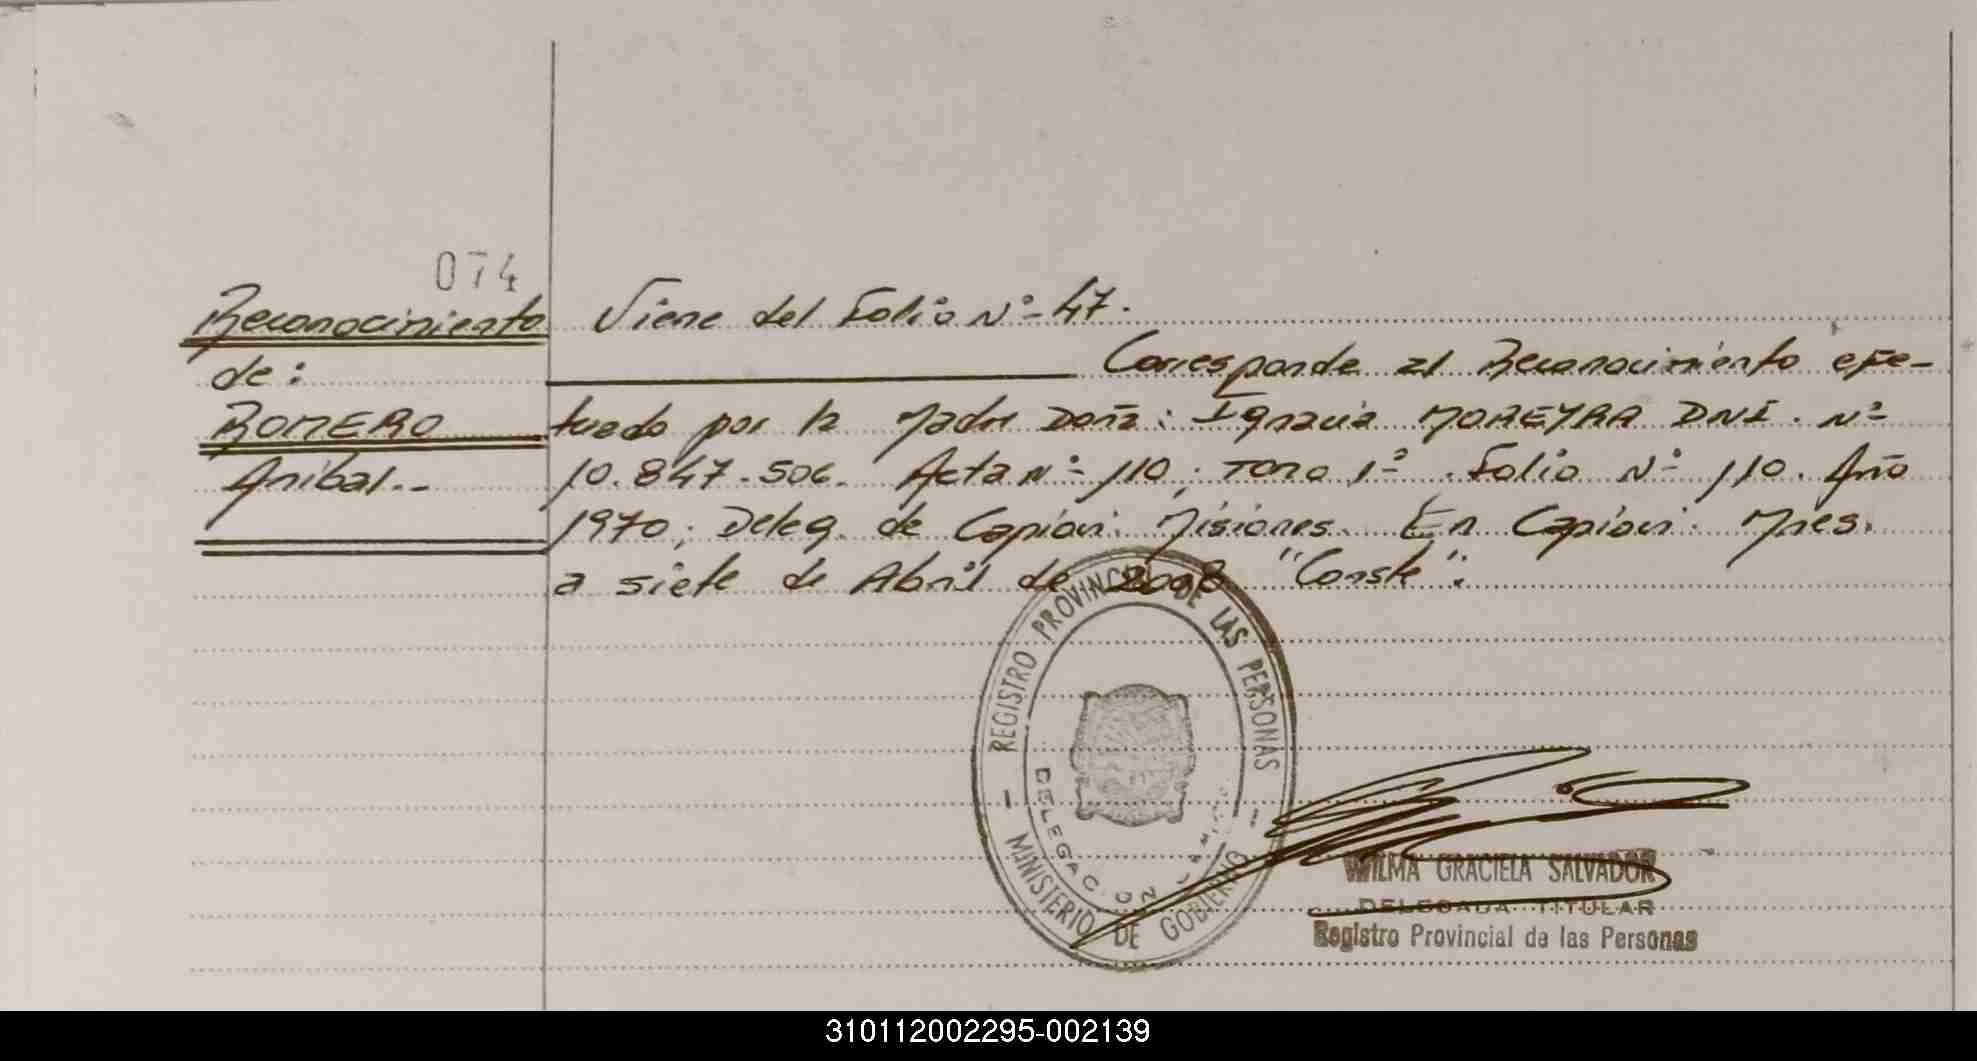 074
Reconocimiento
de:
ROMERO
Anibal.-
Viene del Folio Nº 47.
Corresponde al Reconocimiento efe-
tuado por la Madre Doña: Ignacia MOREYRA DNI. Nº
10.847.506. Acta Nº 110; Tomo 1º. Folio Nº 110. Año
1970; Deleg. de Capiovi. Misiones. En Capiovi. Mnes.
a siete de Abril de 2008 "Conste".
REGISTRO PROVINCIAL DE LAS PERSONAS
- MINISTERIO DE GOBIERNO -
DELEGACION
WILMA GRACIELA SALVADOR
DELEGADA TITULAR
Registro Provincial de las Personas
310112002295-002139